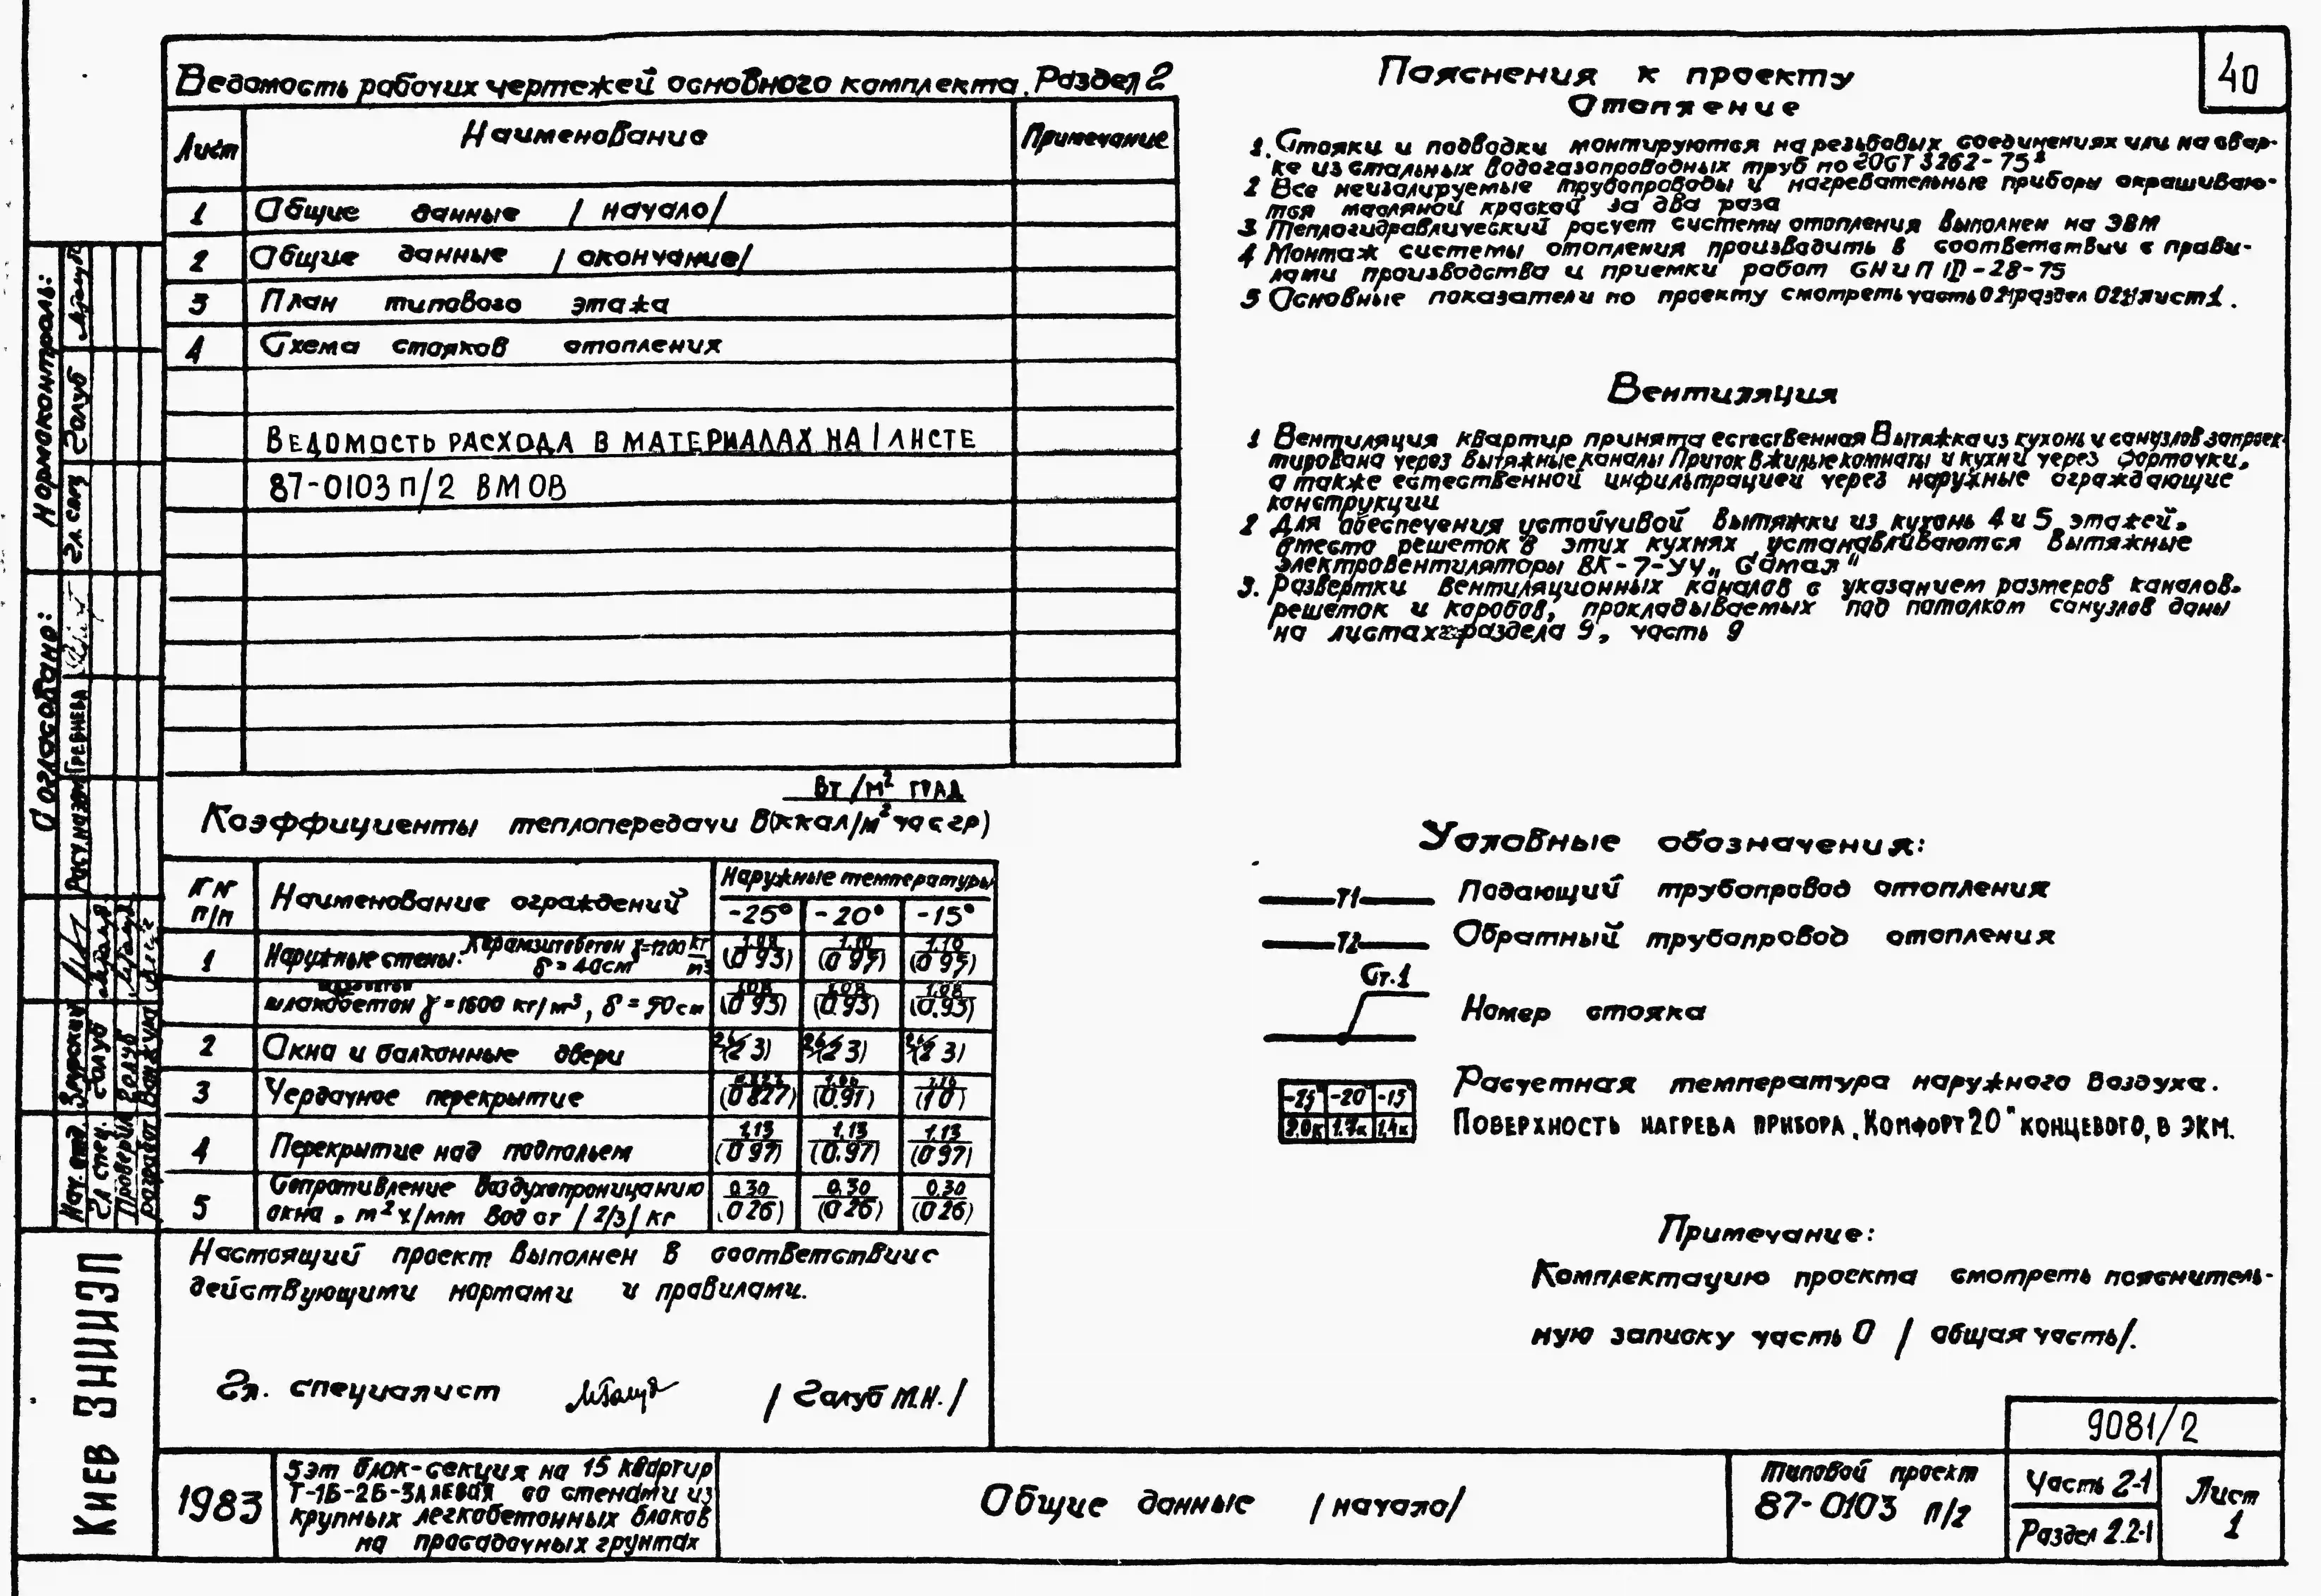 40
Ведомость рабочих чертежей основного комплекта. Раздел 2
Лист Наименование Примечание
1 Общие данные /начало/
2 Общие данные /окончание/
3 План типового этажа
4 Схема стояков отопления
Ведомость расхода в материалах на 1 листе
87-0103п/2 ВМОВ
Пояснения к проекту
Отопление
1. Стояки и подводки монтируются на резьбовых соединениях или на свар-
ке из стальных водогазопроводных труб по ГОСТ 3262-75*
2 Все неизолируемые трубопроводы и нагревательные приборы окрашиваю-
тся масляной краской за два раза
3 Теплогидравлический расчет системы отопления выполнен на ЭВМ
4 Монтаж системы отопления производить в соответствии с прави-
лами производства и приемки работ СНиП III-28-75
5 Основные показатели по проекту смотреть часть раздел лист 1.
Вентиляция
1 Вентиляция квартир принята естественная Вытяжка из кухонь и санузлов запроек-
тирована через вытяжные каналы Приток в жилые комнаты и кухни через форточки,
а также естественной инфильтрацией через наружные ограждающие
конструкции
2 Для обеспечения устойчивой вытяжки из кухонь 4 и 5 этажей,
вместо решеток в этих кухнях устанавливаются вытяжные
электровентиляторы ВК-7-УЧ
3. Развертки вентиляционных каналов с указанием размеров каналов.
решеток и коробов, прокладываемых под потолком санузлов даны
на листах раздела 9, часть 9
Вт/м² град
Коэффициенты теплопередачи в (ккал/м² час гр)
№№ п/п Наименование ограждений Наружные температуры
-25° -20° -15°
1 Наружные стены: Керамзитобетон γ=1200 кг/м³ δ=40см 1.08 (0 93) 1.10 (0 95) 1.10 (0 95)
шлакобетон γ=1600 кг/м³, δ=50см 1.08 (0 93) 1.08 (0.93) 1.08 (0.93)
2 Окна и балконные двери (2 3) (2 3) (2 3)
3 Чердачное перекрытие (0 827) (0.91) (1 0)
4 Перекрытие над подпольем 1.13 (0 97) 1.13 (0.97) 1.13 (0 97)
5 Сопротивление воздухопроницанию 0.30 (0 26) 0.30 (0 26) 0.30 (0 26)
окна, м² ч/мм вод ст /2/3/ кг
Настоящий проект выполнен в соответствии с
действующими нормами и правилами.
Гл. специалист /Голуб М.Н./
Условные обозначения:
Т1 Подающий трубопровод отопления
Т2 Обратный трубопровод отопления
Ст.1
Номер стояка
-25 -20 -15 Расчетная температура наружного воздуха.
2.0к 1.7к 1,4к Поверхность нагрева прибора „Комфорт 20" концевого, в экм.
Примечание:
Комплектацию проекта смотреть пояснитель-
ную записку часть 0 /общая часть/.
9081/2
1983
5эт блок-секция на 15 квартир
Т-1Б-2Б-3А левая со стенами из
крупных легкобетонных блоков
на просадочных грунтах
Общие данные /начало/
Типовой проект
87-0103 п/2
Часть 2-1
Раздел 2.2-1
Лист
1
Нормоконтроль:
Гл. спец Голуб
Согласовано:
Гребнева
Нач. отд.
Гл спец. Голуб
Проверил Голуб
разработ
Киев ЗНИИЭП